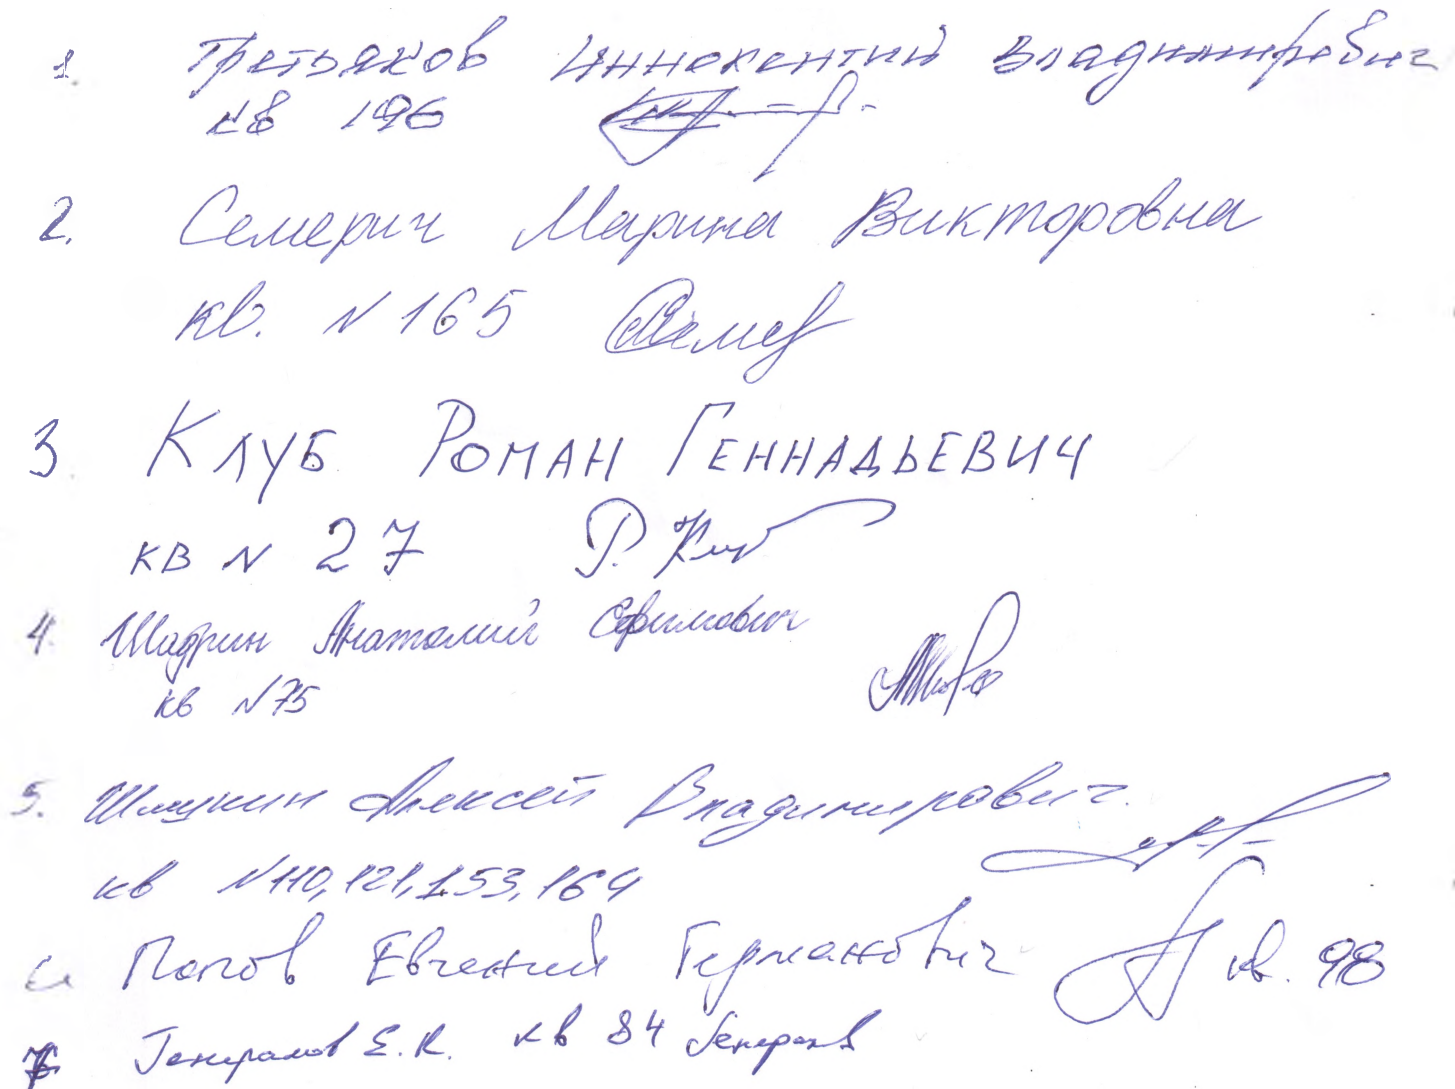 1. Третьяков Иннокентий Владимирович
кв 196
2. Семерич Марина Викторовна
кв. N 165
3 Клуб Роман Геннадьевич
кв N 27 Р. Клуб
4. Шадрин Анатолий Ефимович
кв N75
5. Алексей Владимирович.
кв N110,121,153,164
Попов Евгений Германович кв. 98
7 Генералов Е.К. кв 84